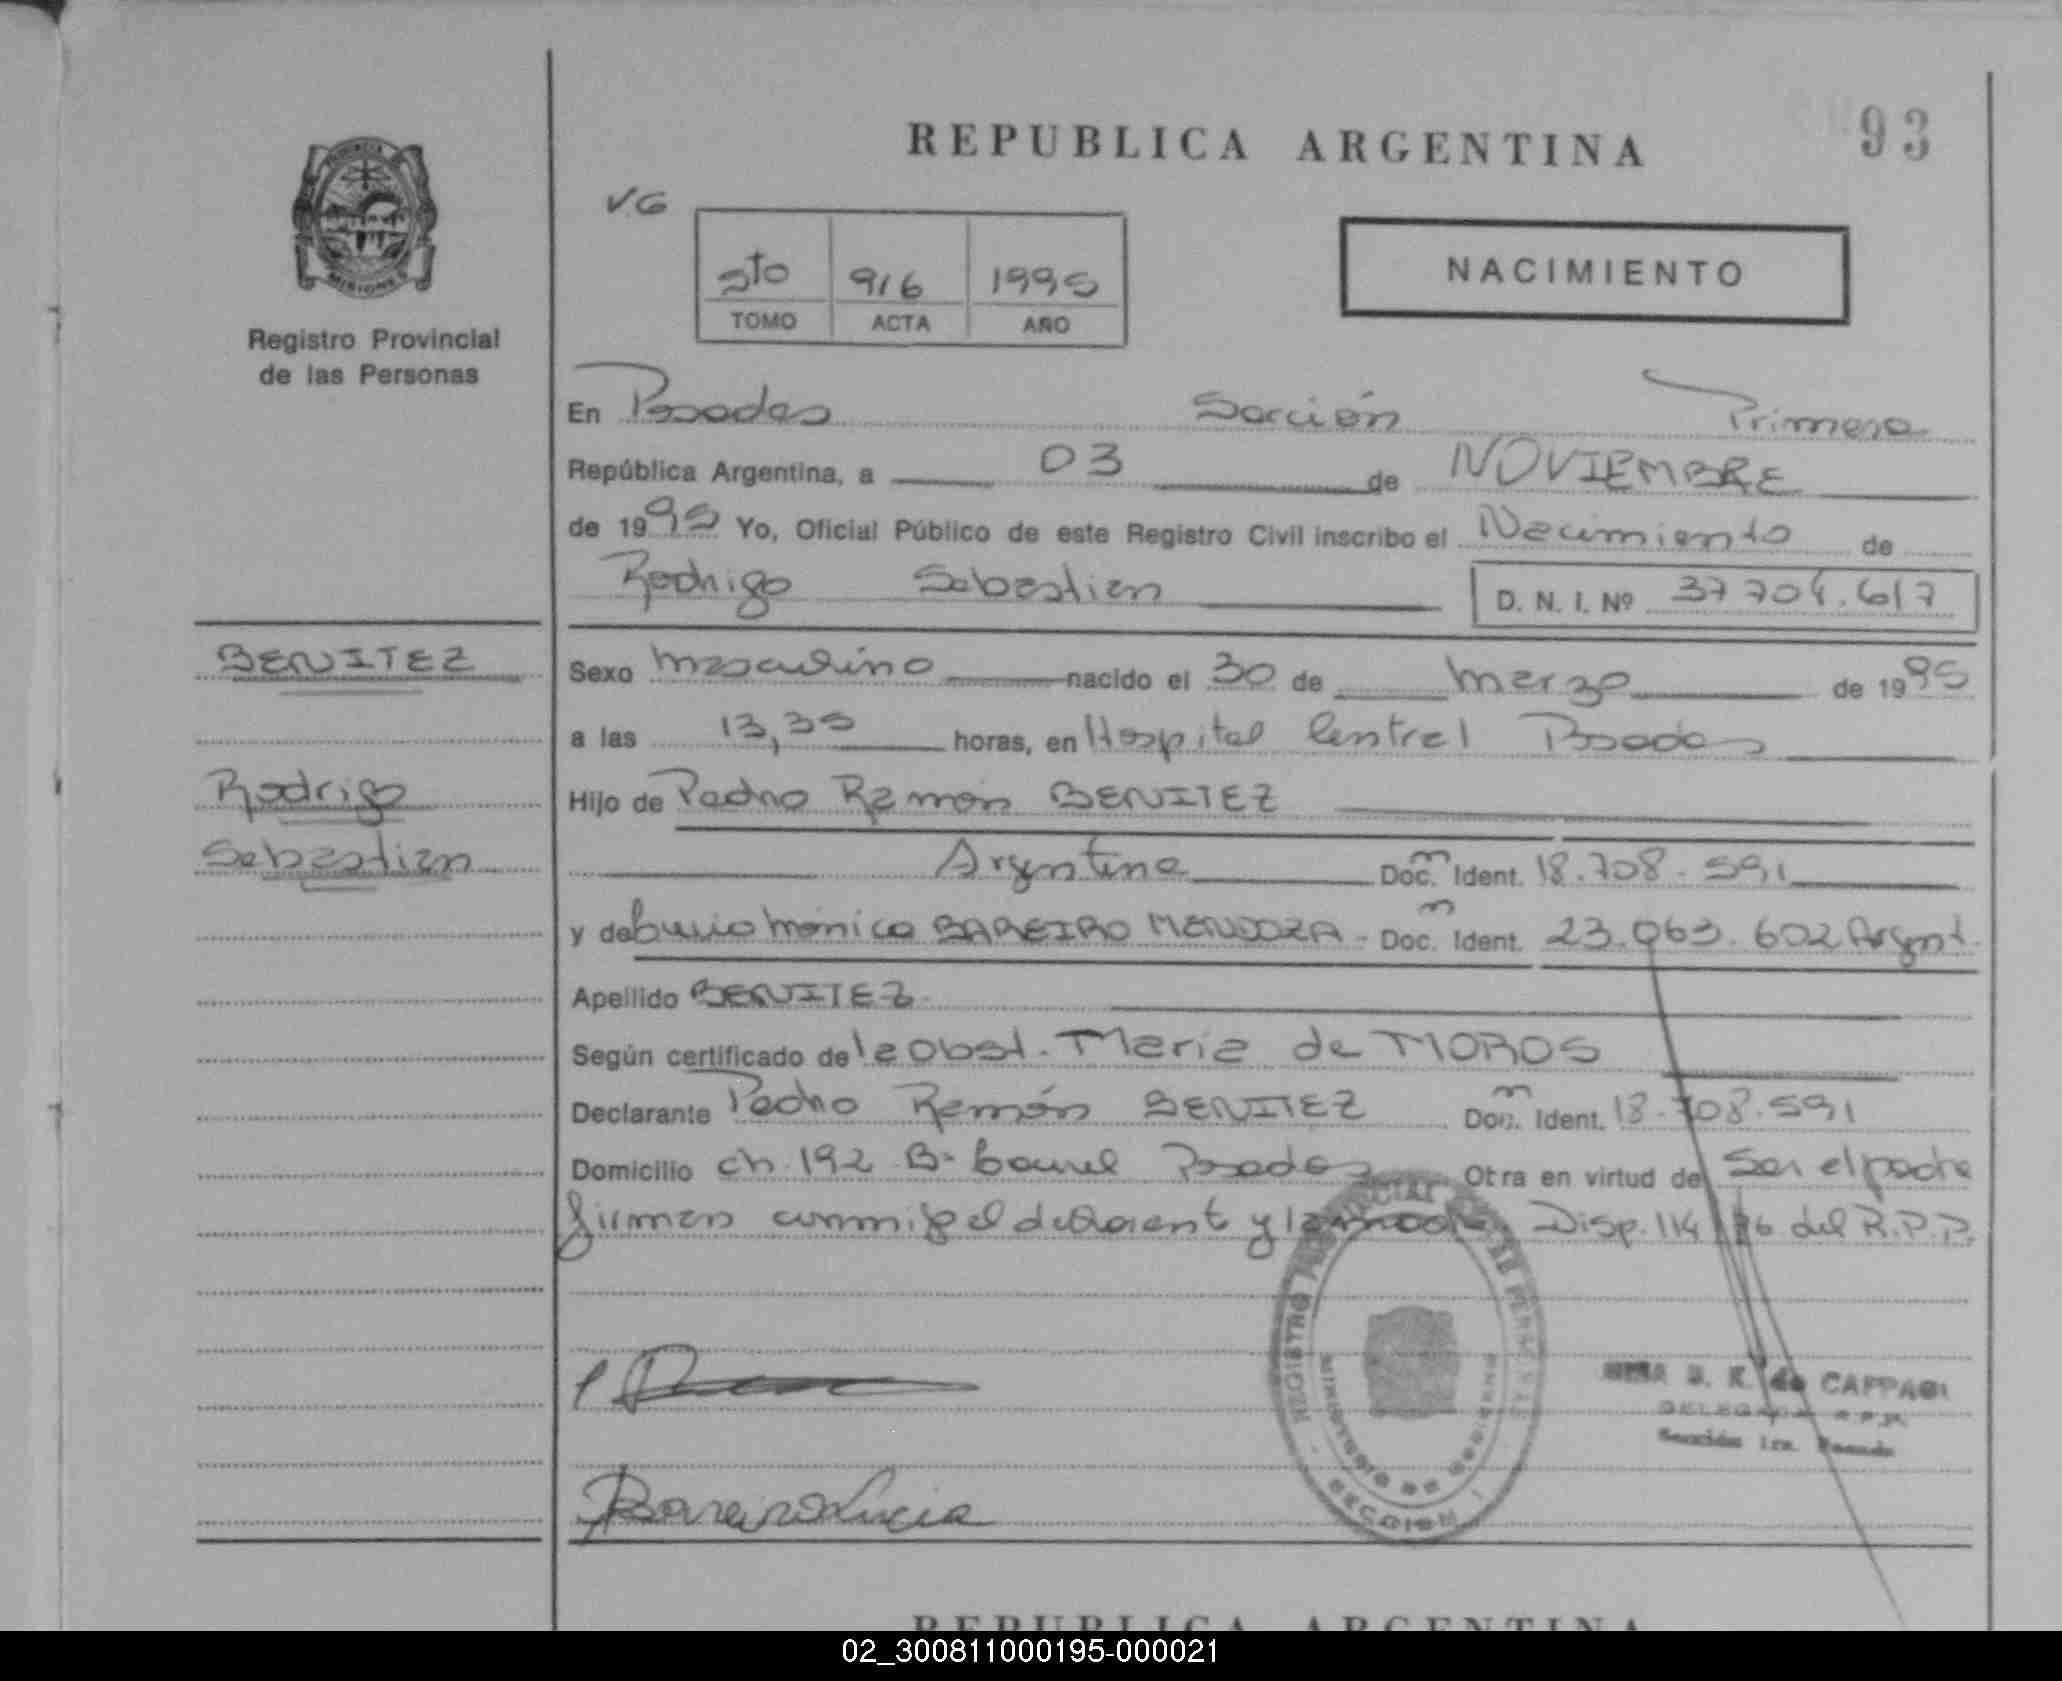 REPUBLICA ARGENTINA
93
V.G
5to 916 1995
TOMO ACTA AÑO
NACIMIENTO
Registro Provincial
de las Personas
En Posadas Sección Primera
República Argentina, a 03 de NOVIEMBRE
de 1995 Yo, Oficial Público de este Registro Civil inscribo el Nacimiento de
Rodrigo Sebastian D. N. I. Nº 37.704.617
BENITEZ
Rodrigo
Sebastian
Sexo masculino nacido el 30 de marzo de 1995
a las 13,35 horas, en Hospital Central Posadas
Hijo de Pedro Ramón BENITEZ
Argentina Doc. Ident. 18.708.591
y de Mónica BAREIRO MENDOZA - Doc. Ident. 23.063.602 Argent.
Apellido BENITEZ
Según certificado de la Obst. Maria de MOROS
Declarante Pedro Ramón BENITEZ Doc. Ident. 18.708.591
Domicilio ch. 192 Bº Posadas Otra en virtud de Ser el padre
firman conmigo el declarante y la madre. Disp. 114/76 del R.P.P.
REGISTRO PROVINCIAL DE LAS PERSONAS
MINISTERIO DE GOBIERNO
SECCION 1
S. K. de CAPPAGI
DELEGADA R.P.P.
Sección 1ra. Posadas
Bareiro Lucia
REPUBLICA ARGENTINA
02_300811000195-000021